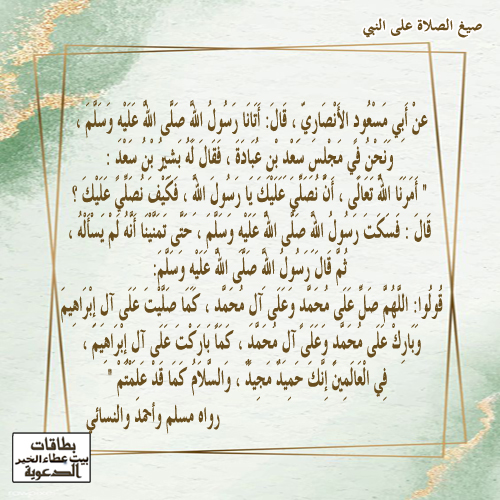 صيغ الصلاة على النبي
عَنْ أَبِي مَسْعُودٍ الأَنْصَارِيِّ ، قَالَ: أَتَانَا رَسُولُ اللهِ صَلَّى اللهُ عَلَيْهِ وَسَلَّمَ ،
وَنَحْنُ فِي مَجْلِسِ سَعْدِ بْنِ عُبَادَةَ ، فَقَالَ لَهُ بَشِيرُ بْنُ سَعْدٍ :
" أَمَرَنَا اللهُ تَعَالَى ، أَنْ نُصَلِّيَ عَلَيْكَ يَا رَسُولَ اللهِ ، فَكَيْفَ نُصَلِّي عَلَيْكَ ؟
قَالَ : فَسَكَتَ رَسُولُ اللهِ صَلَّى اللهُ عَلَيْهِ وَسَلَّمَ ، حَتَّى تَمَنَّيْنَا أَنَّهُ لَمْ يَسْأَلْهُ ،
ثُمَّ قَالَ رَسُولُ اللهِ صَلَّى اللهُ عَلَيْهِ وَسَلَّمَ:
قُولُوا: اللَّهُمَّ صَلِّ عَلَى مُحَمَّدٍ وَعَلَى آلِ مُحَمَّدٍ ، كَمَا صَلَّيْتَ عَلَى آلِ إِبْرَاهِيمَ
وَبَارِكْ عَلَى مُحَمَّدٍ وَعَلَى آلِ مُحَمَّدٍ ، كَمَا بَارَكْتَ عَلَى آلِ إِبْرَاهِيمَ ،
فِي الْعَالَمِينَ إِنَّكَ حَمِيدٌ مَجِيدٌ ، وَالسَّلَامُ كَمَا قَدْ عَلِمْتُمْ "
رواه مسلم وأحمد والنسائي
بطاقات
بيت عطاء الخير
الدعوية